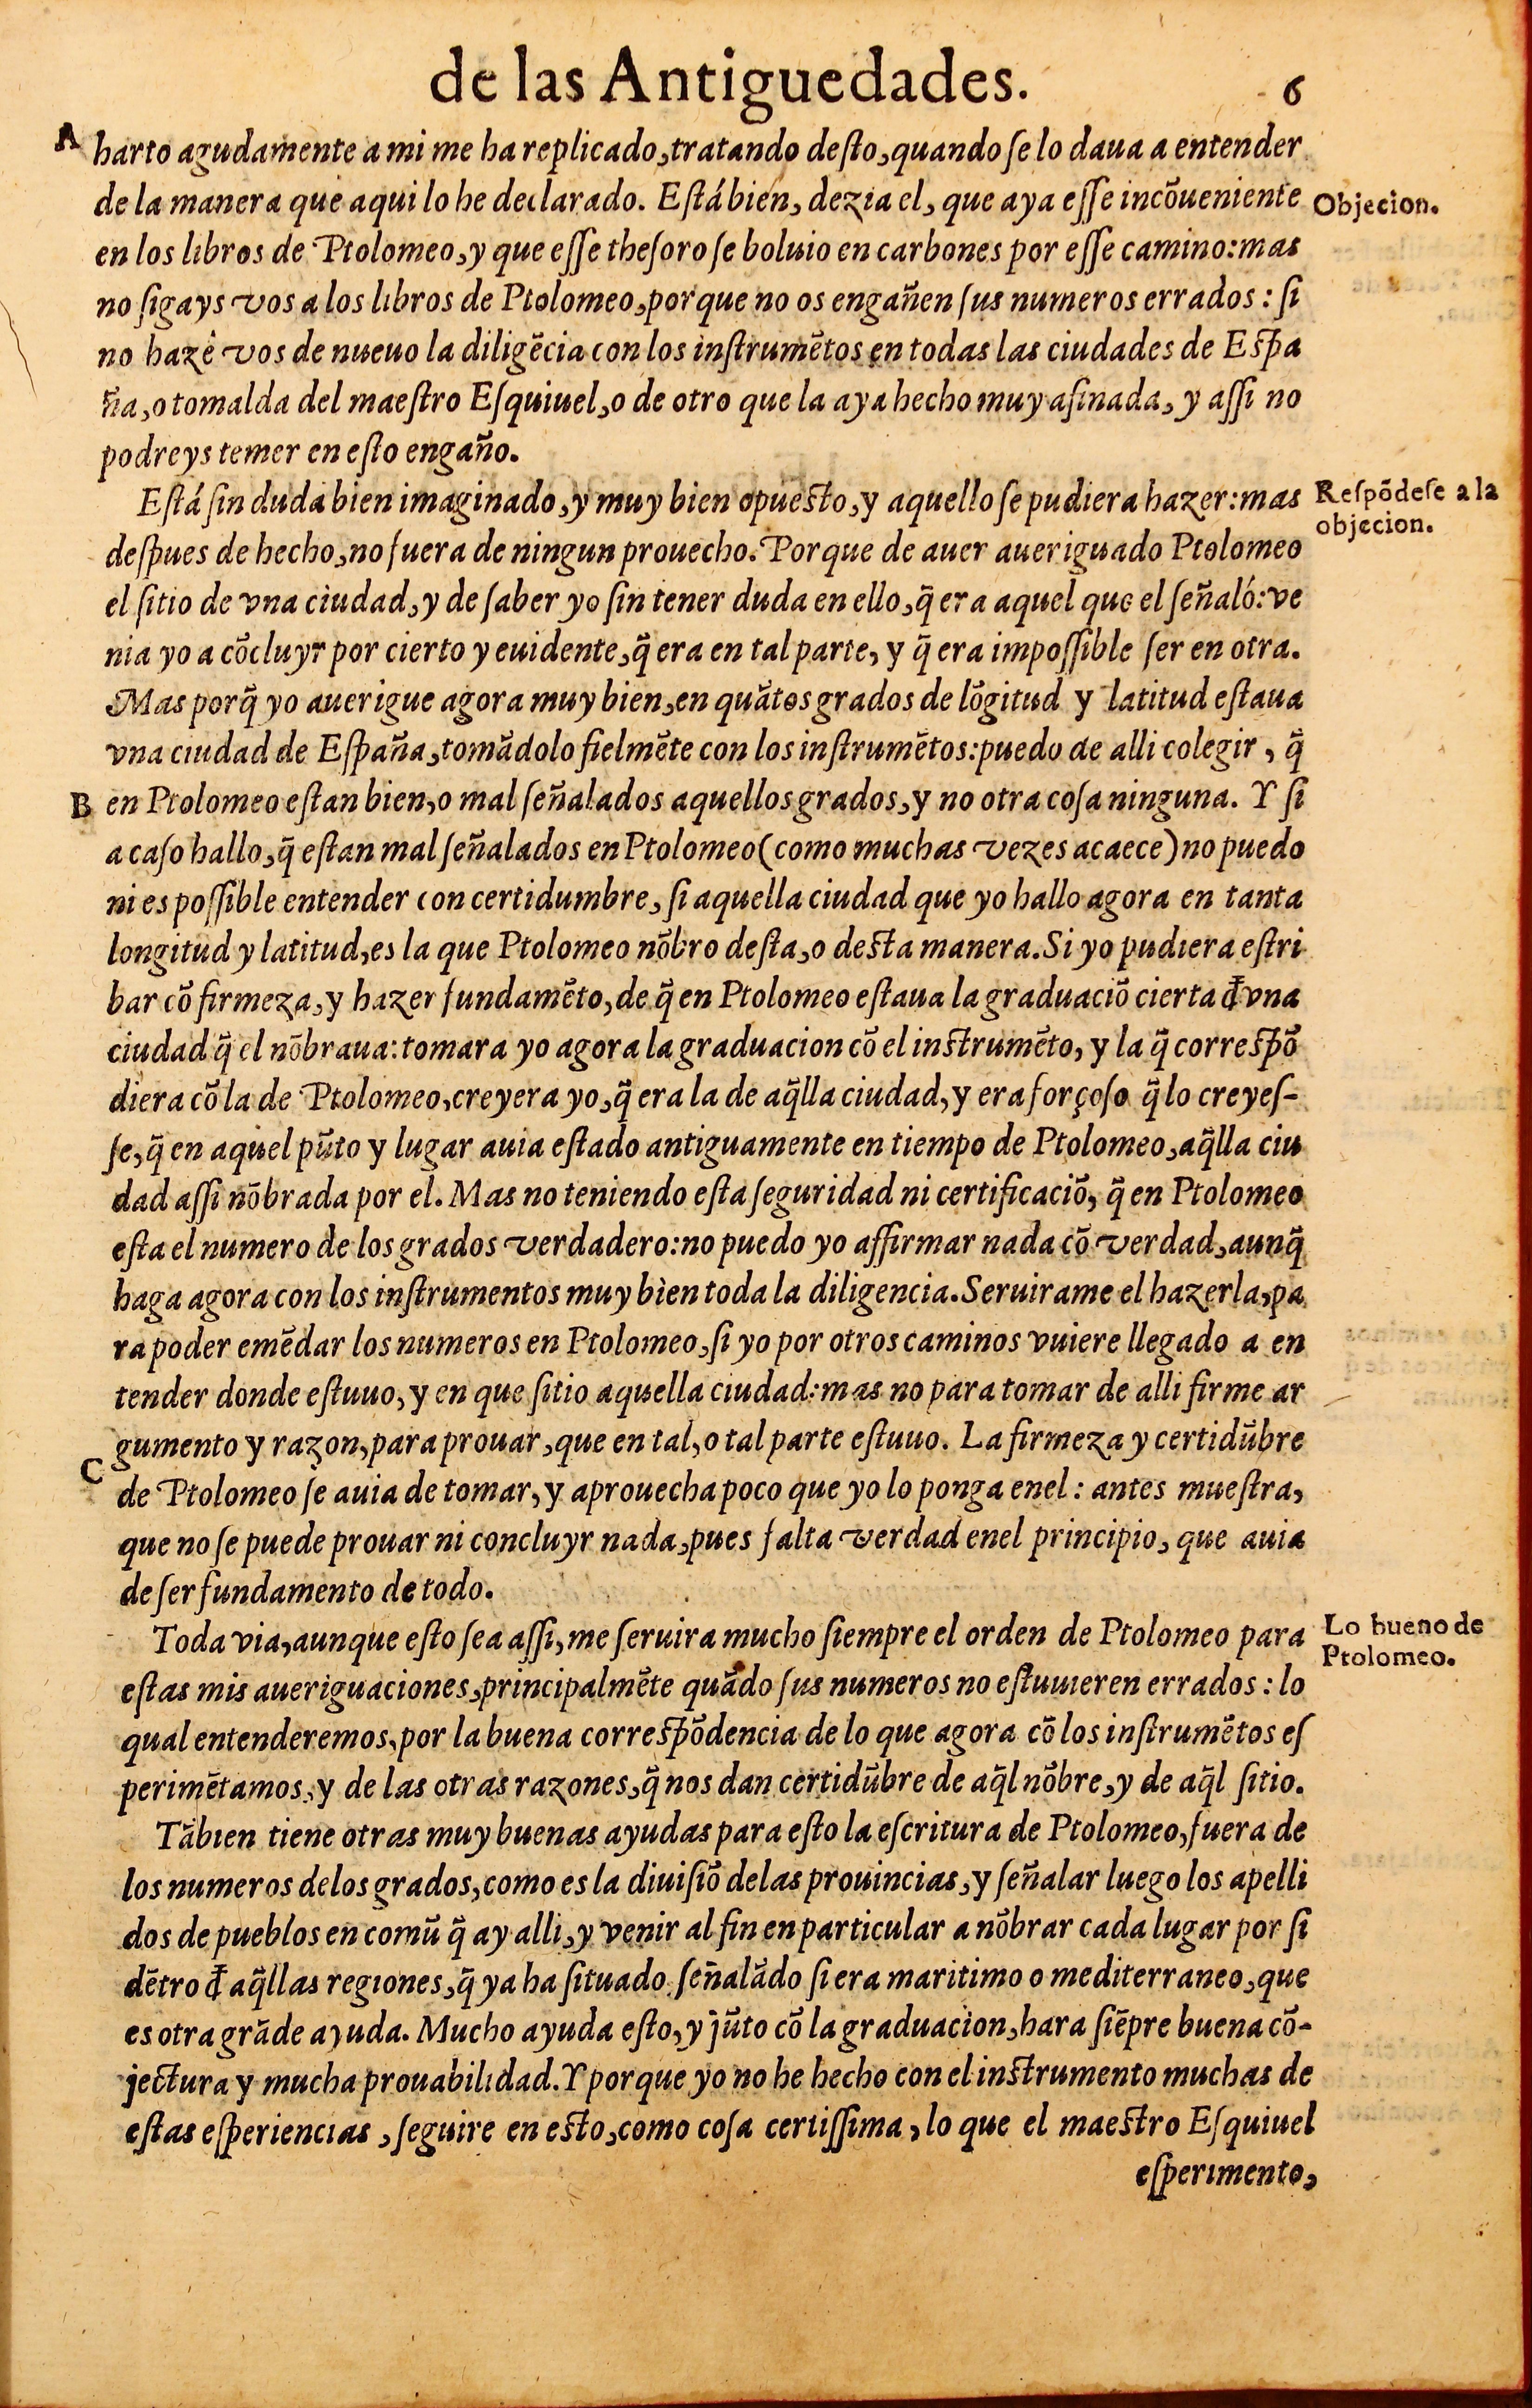 de las Antiguedades. 6
A harto agudamente a mi me ha replicado, tratando deſto, quando ſe lo daua a entender
de la manera que aqui lo he declarado. Eſtá bien, dezia el, que aya eſſe incōueniente
Objecion.
en los libros de Ptolomeo, y que eſſe theſoro ſe boluio en carbones por eſſe camino: mas
no ſigays vos a los libros de Ptolomeo, porque no os engañen ſus numeros errados: ſi
no hazé vos de nueuo la diligēcia con los inſtrumētos en todas las ciudades de Eſpa
ña, o tomalda del maeſtro Eſquiuel, o de otro que la aya hecho muy afinada, y aſſi no
podreys temer en eſto engaño.
Eſtá ſin duda bien imaginado, y muy bien opueſto, y aquello ſe pudiera hazer: mas
Reſpōdeſe a la
objecion.
deſpues de hecho, no fuera de ningun prouecho. Porque de auer aueriguado Ptolomeo
el ſitio de vna ciudad, y de ſaber yo ſin tener duda en ello, q̃ era aquel que el ſeñaló: ve
nia yo a cōcluyr por cierto y euidente, q̃ era en tal parte, y q̃ era impoſſible ſer en otra.
Mas porq̃ yo auerigue agora muy bien, en quātos grados de lōgitud y latitud eſtaua
vna ciudad de Eſpaña, tomādolo fielmēte con los inſtrumētos: puedo de alli colegir, q̃
B en Ptolomeo eſtan bien, o mal ſeñalados aquellos grados, y no otra coſa ninguna. Y ſi
a caſo hallo, q̃ eſtan mal ſeñalados en Ptolomeo (como muchas vezes acaece) no puedo
ni es poſſible entender con certidumbre, ſi aquella ciudad que yo hallo agora en tanta
longitud y latitud, es la que Ptolomeo nōbro deſta, o deſta manera. Si yo pudiera eſtri
bar cō firmeza, y hazer fundamēto, de q̃ en Ptolomeo eſtaua la graduaciō cierta đ vna
ciudad q̃ el nōbraua: tomara yo agora la graduacion cō el inſtrumēto, y la q̃ correſpō
diera cō la de Ptolomeo, creyera yo, q̃ era la de aq̃lla ciudad, y era forçoſo q̃ lo creyeſ-
ſe, q̃ en aquel pūto y lugar auia eſtado antiguamente en tiempo de Ptolomeo, aq̃lla ciu
dad aſſi nōbrada por el. Mas no teniendo eſta ſeguridad ni certificaciō, q̃ en Ptolomeo
eſta el numero de los grados verdadero: no puedo yo affirmar nada cō verdad, aunq̃
haga agora con los inſtrumentos muy bien toda la diligencia. Seruirame el hazerla, pa
ra poder emēdar los numeros en Ptolomeo, ſi yo por otros caminos vuiere llegado a en
tender donde eſtuuo, y en que ſitio aquella ciudad: mas no para tomar de alli firme ar
gumento y razon, para prouar, que en tal, o tal parte eſtuuo. La firmeza y certidūbre
C de Ptolomeo ſe auia de tomar, y aprouecha poco que yo lo ponga enel: antes mueſtra,
que no ſe puede prouar ni concluyr nada, pues falta verdad enel principio, que auia
de ſer fundamento de todo.
Toda via, aunque eſto ſea aſſi, me ſeruira mucho ſiempre el orden de Ptolomeo para
Lo bueno de
Ptolomeo.
eſtas mis aueriguaciones, principalmēte quādo ſus numeros no eſtuuieren errados: lo
qual entenderemos, por la buena correſpōdencia de lo que agora cō los inſtrumētos eſ
perimētamos, y de las otras razones, q̃ nos dan certidūbre de aq̃l nōbre, y de aq̃l ſitio.
Tābien tiene otras muy buenas ayudas para eſto la eſcritura de Ptolomeo, fuera de
los numeros delos grados, como es la diuiſiō delas prouincias, y ſeñalar luego los apelli
dos de pueblos en comū q̃ ay alli, y venir al fin en particular a nōbrar cada lugar por ſi
dētro đ aq̃llas regiones, q̃ ya ha ſituado, ſeñalādo ſi era maritimo o mediterraneo, que
es otra grāde ayuda. Mucho ayuda eſto, y jūto cō la graduacion, hara ſiēpre buena cō-
jectura y mucha prouabilidad. Y porque yo no he hecho con el inſtrumento muchas de
eſtas eſperiencias, ſeguire en eſto, como coſa certiſſima, lo que el maeſtro Eſquiuel
eſperimento,